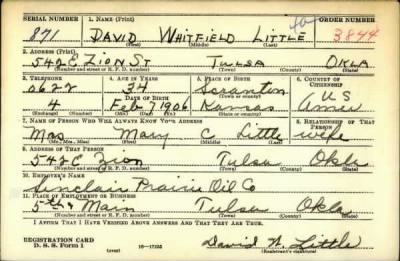 SERIAL NUMBER 1. NAME (Print) ORDER NUMBER
871 DAVID WHITFIELD LITTLE 3844
(First) (Middle) (Last)
2. ADDRESS (Print)
542 E ZION ST TULSA OKLA
(Number and street or R. F. D. number) (Town) (County) (State)
3. TELEPHONE 4. AGE IN YEARS 5. PLACE OF BIRTH 6. COUNTRY OF CITIZENSHIP
0622 34 Scranton U S
DATE OF BIRTH (Town or county)
4 Feb 7 1906 Kansas Amer
(Mo.) (Day) (Yr.) (State or country)
7. NAME OF PERSON WHO WILL ALWAYS KNOW YOUR ADDRESS 8. RELATIONSHIP OF THAT PERSON
Mrs Mary C Little wife
(Mr., Mrs., Miss) (First) (Middle) (Last)
9. ADDRESS OF THAT PERSON
542 E Zion Tulsa Okla
(Number and street or R. F. D. number) (Town) (County) (State)
10. EMPLOYER'S NAME
Sinclair Prairie Oil Co
11. PLACE OF EMPLOYMENT OR BUSINESS
5th & Main Tulsa Okla
(Number and street or R. F. D. number) (Town) (County) (State)
I AFFIRM THAT I HAVE VERIFIED ABOVE ANSWERS AND THAT THEY ARE TRUE.
REGISTRATION CARD
D. S. S. Form 1 (over) David W. Little